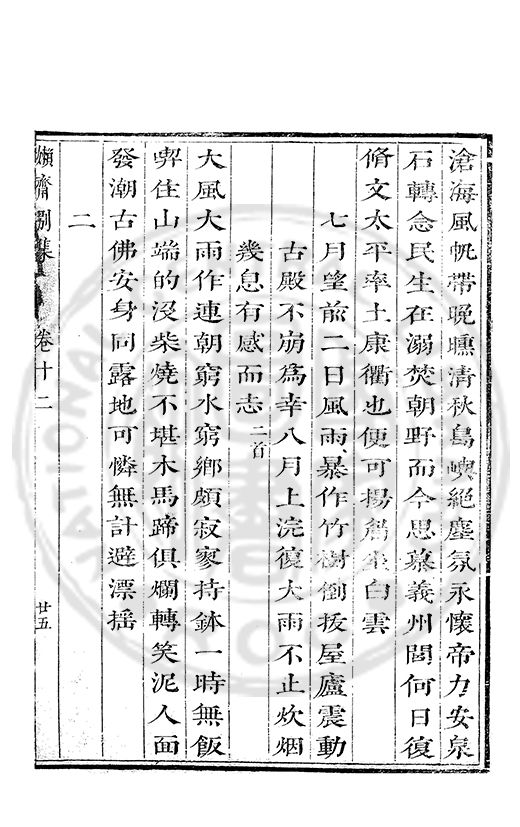 滄海風帆帶晚曛清秋島嶼絕塵氛永懷帝力安泉
石轉念民生在溺焚朝野而今思慕義州閭何日復
脩文太平率土康衢也便可揚觶坐白雲
七月望前二日風雨暴作竹樹倒拔屋廬震動
古殿不崩爲幸八月上浣復大雨不止炊烟
幾息有感而志二首
大風大雨作連朝窮水窮鄉頗寂寥持鉢一時無飯
喫住山端的沒柴燒不堪木馬蹄俱爛轉笑泥人面
發潮古佛安身同露地可憐無計避漂搖
二
嬾齋別集
卷十二
廿五